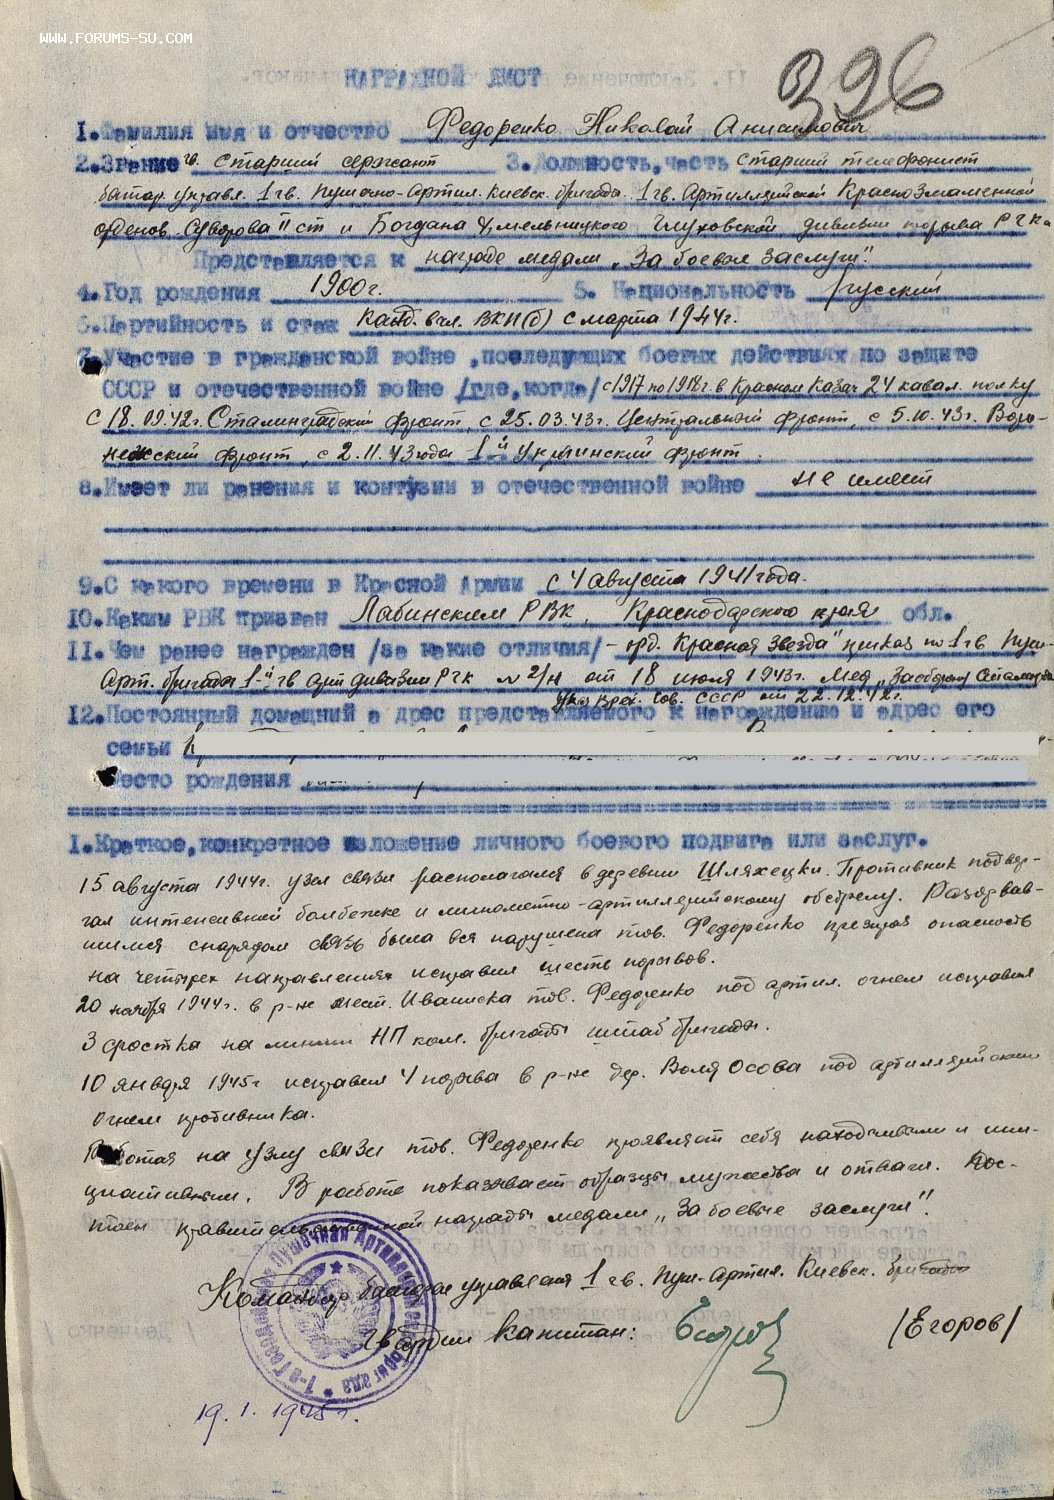 WWW.FORUMS-SU.COM
НАГРАДНОЙ ЛИСТ
326
1. Фамилия имя и отчество Федоренко Николай Анисимович
2. Звание гв. старший сержант 3. Должность, часть старший телефонист
батар. управл. 1 гв. Пушечно-Артил. Киевск. бригады. 1 гв. Артиллерийской Краснознаменной
орденов Суворова II ст и Богдана Хмельницкого Глуховской дивизии прорыва РГК
Представляется к награде медали „За боевые заслуги".
4. Год рождения 1900 г. 5. Национальность русский
6. Партийность и стаж Канд. в чл. ВКП(б) с марта 1944 г.
7. Участие в гражданской войне, последующих боевых действиях по защите
СССР и отечественной войне /где, когда/ с 1917 по 1918 г. в Красном Казач 24 кавал. полку
с 18.09.42 г. Сталинградский фронт, с 25.03.43 г. Центральный фронт, с 5.10.43 г. Воро-
нежский фронт, с 2.11.43 года 1-й Украинский фронт.
8. Имеет ли ранения и контузии в отечественной войне не имеет
9. С какого времени в Красной Армии с 4 августа 1941 года.
10. Каким РВК призван Лабинским РВК, Краснодарского края обл.
11. Чем ранее награжден /за какие отличия/ - орд. „Красная Звезда" приказ по 1 гв Пуш-
Арт. бригады 1-й гв Арт дивизии РГК № 2/н от 18 июля 1943 г. Мед „За оборону Сталинграда
Указ През. Сов. СССР от 22.12.42 г.
12. Постоянный домашний адрес представляемого к награждению и адрес его
семьи
Место рождения
1. Краткое, конкретное изложение личного боевого подвига или заслуг.
15 августа 1944 г. узел связи располагался в деревни Шляхецки. Противник подвер-
гал интенсивной бомбежке и минометно-артиллерийскому обстрелу. Разорвав-
шимся снарядом связь была вся нарушена тов. Федоренко презирая опасность
на четырех направлениях исправил шесть порывов.
20 ноября 1944 г. в р-не мест. Иваниска тов. Федоренко под артил. огнем исправил
3 сростка на линии НП ком. бригады штаб бригады.
10 января 1945 г исправил 4 порыва в р-не дер. Воля Осова под артиллерийским
огнем противника.
Работая на узлу связи тов. Федоренко проявляет себя находчивым и ини-
циативным. В работе показывает образцы мужества и отваги. Дос-
тоен правительственной награды медали „За боевые заслуги".
Командир батареи управления 1 гв. Пуш. Артил. Киевск. бригады
гвардии капитан: /Егоров/
1-я Гвардейская Пушечная Артиллерийская Бригада
19.1.1945 г.